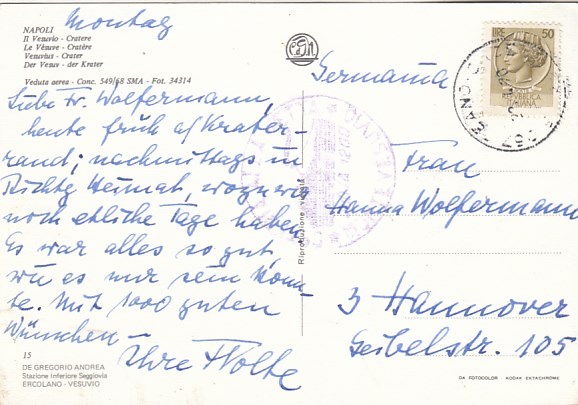 Montag
NAPOLI
Il Vesuvio - Cratere
Le Vésuve - Cratère
Vesuvius - Crater
Der Vesuv - der Krater
Veduta aerea - Conc. 549/68 SMA - Fot. 34314
Liebe Fr. Wolfermann,
heute früh a/Krater-
rand; nachmittags in
Richtg Heimat, wozu wir
noch etliche Tage haben.
Es war alles so gut,
wie es nur sein konn-
te. Mit 1000 guten
Wünschen -
Ihre
15
DE GREGORIO ANDREA
Stazione Inferiore Seggiovia
ERCOLANO - VESUVIO
Riproduzione vietata
LIRE 50
REPUBBLICA
ITALIANA
Germania
Frau
Hanna Wolfermann
3 Hannover
Geibelstr. 105
DA FOTOCOLOR KODAK EKTACHROME